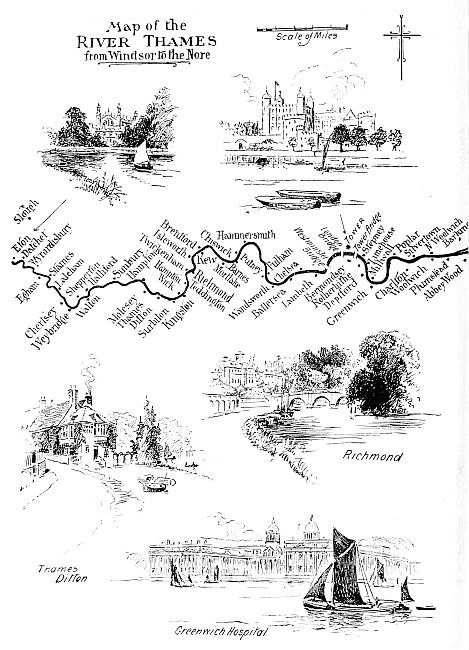 Map of the
RIVER THAMES
from Windsor to the Nore
Scale of Miles
Slough
Eton
Datchet
Wyrardisbury
Egham
Staines
Laleham
Chertsey
Weybridge
Shepperton
Halliford
Walton
Sunbury
Hampton
Molesey
Thames
Ditton
Surbiton
Kingston
Hampton
Wick
Teddington
Twickenham
Isleworth
Richmond
Brentford
Kew
Chiswick
Mortlake
Barnes
Hammersmith
Putney
Fulham
Wandsworth
Battersea
Chelsea
Lambeth
Westminster
London
Bridge
TOWER
Tower Bridge
Bermondsey
Rotherhithe
Deptford
Greenwich
Stepney
Limehouse
Millwall
Poplar
Charlton
Woolwich
Silvertown
N. Woolwich
Plumstead
Abbey Wood
Barking
Richmond
Thames
Ditton
Greenwich Hospital